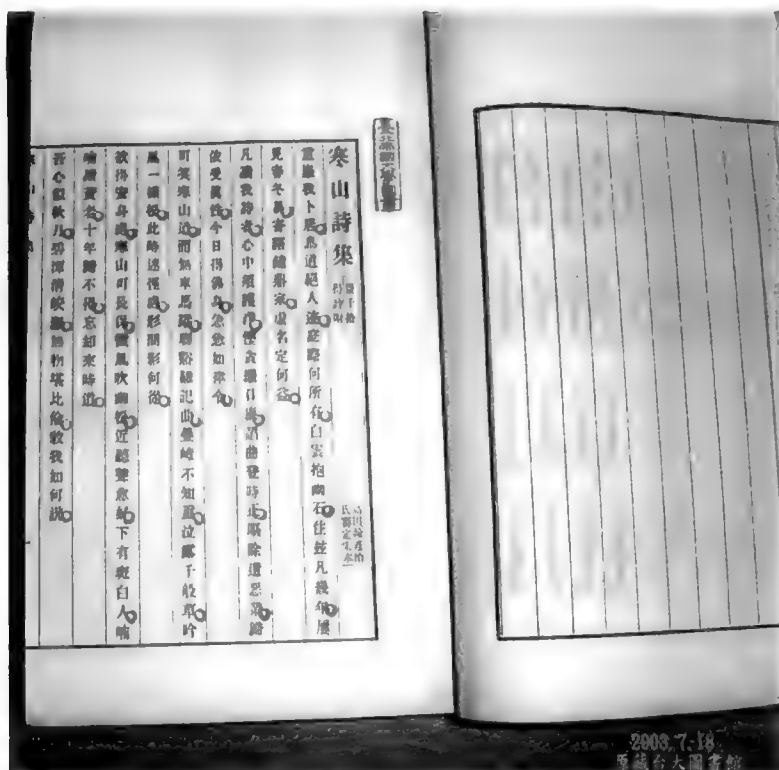 寒山詩集
豐干拾
得詩附
重巖我卜居鳥道絕人迹庭際何所有白雲抱幽石住茲凡幾年屢
見春冬易寄語鐘鼎家虛名定何益
凡讀我詩者心中須護淨慳貪繼日廉諂曲登時正驅除遣惡業歸
依受真性今日得佛身急急如律令
可笑寒山道而無車馬蹤聯谿難記曲疊嶂不知重泣露千般草吟
風一樣松此時迷徑處形問影何從
欲得安身處寒山可長保微風吹幽松近聽聲愈好下有斑白人喃
喃讀黃老十年歸不得忘却來時道
吾心似秋月碧潭清皎潔無物堪比倫教我如何說
2003.7.18
原藏台大圖書館